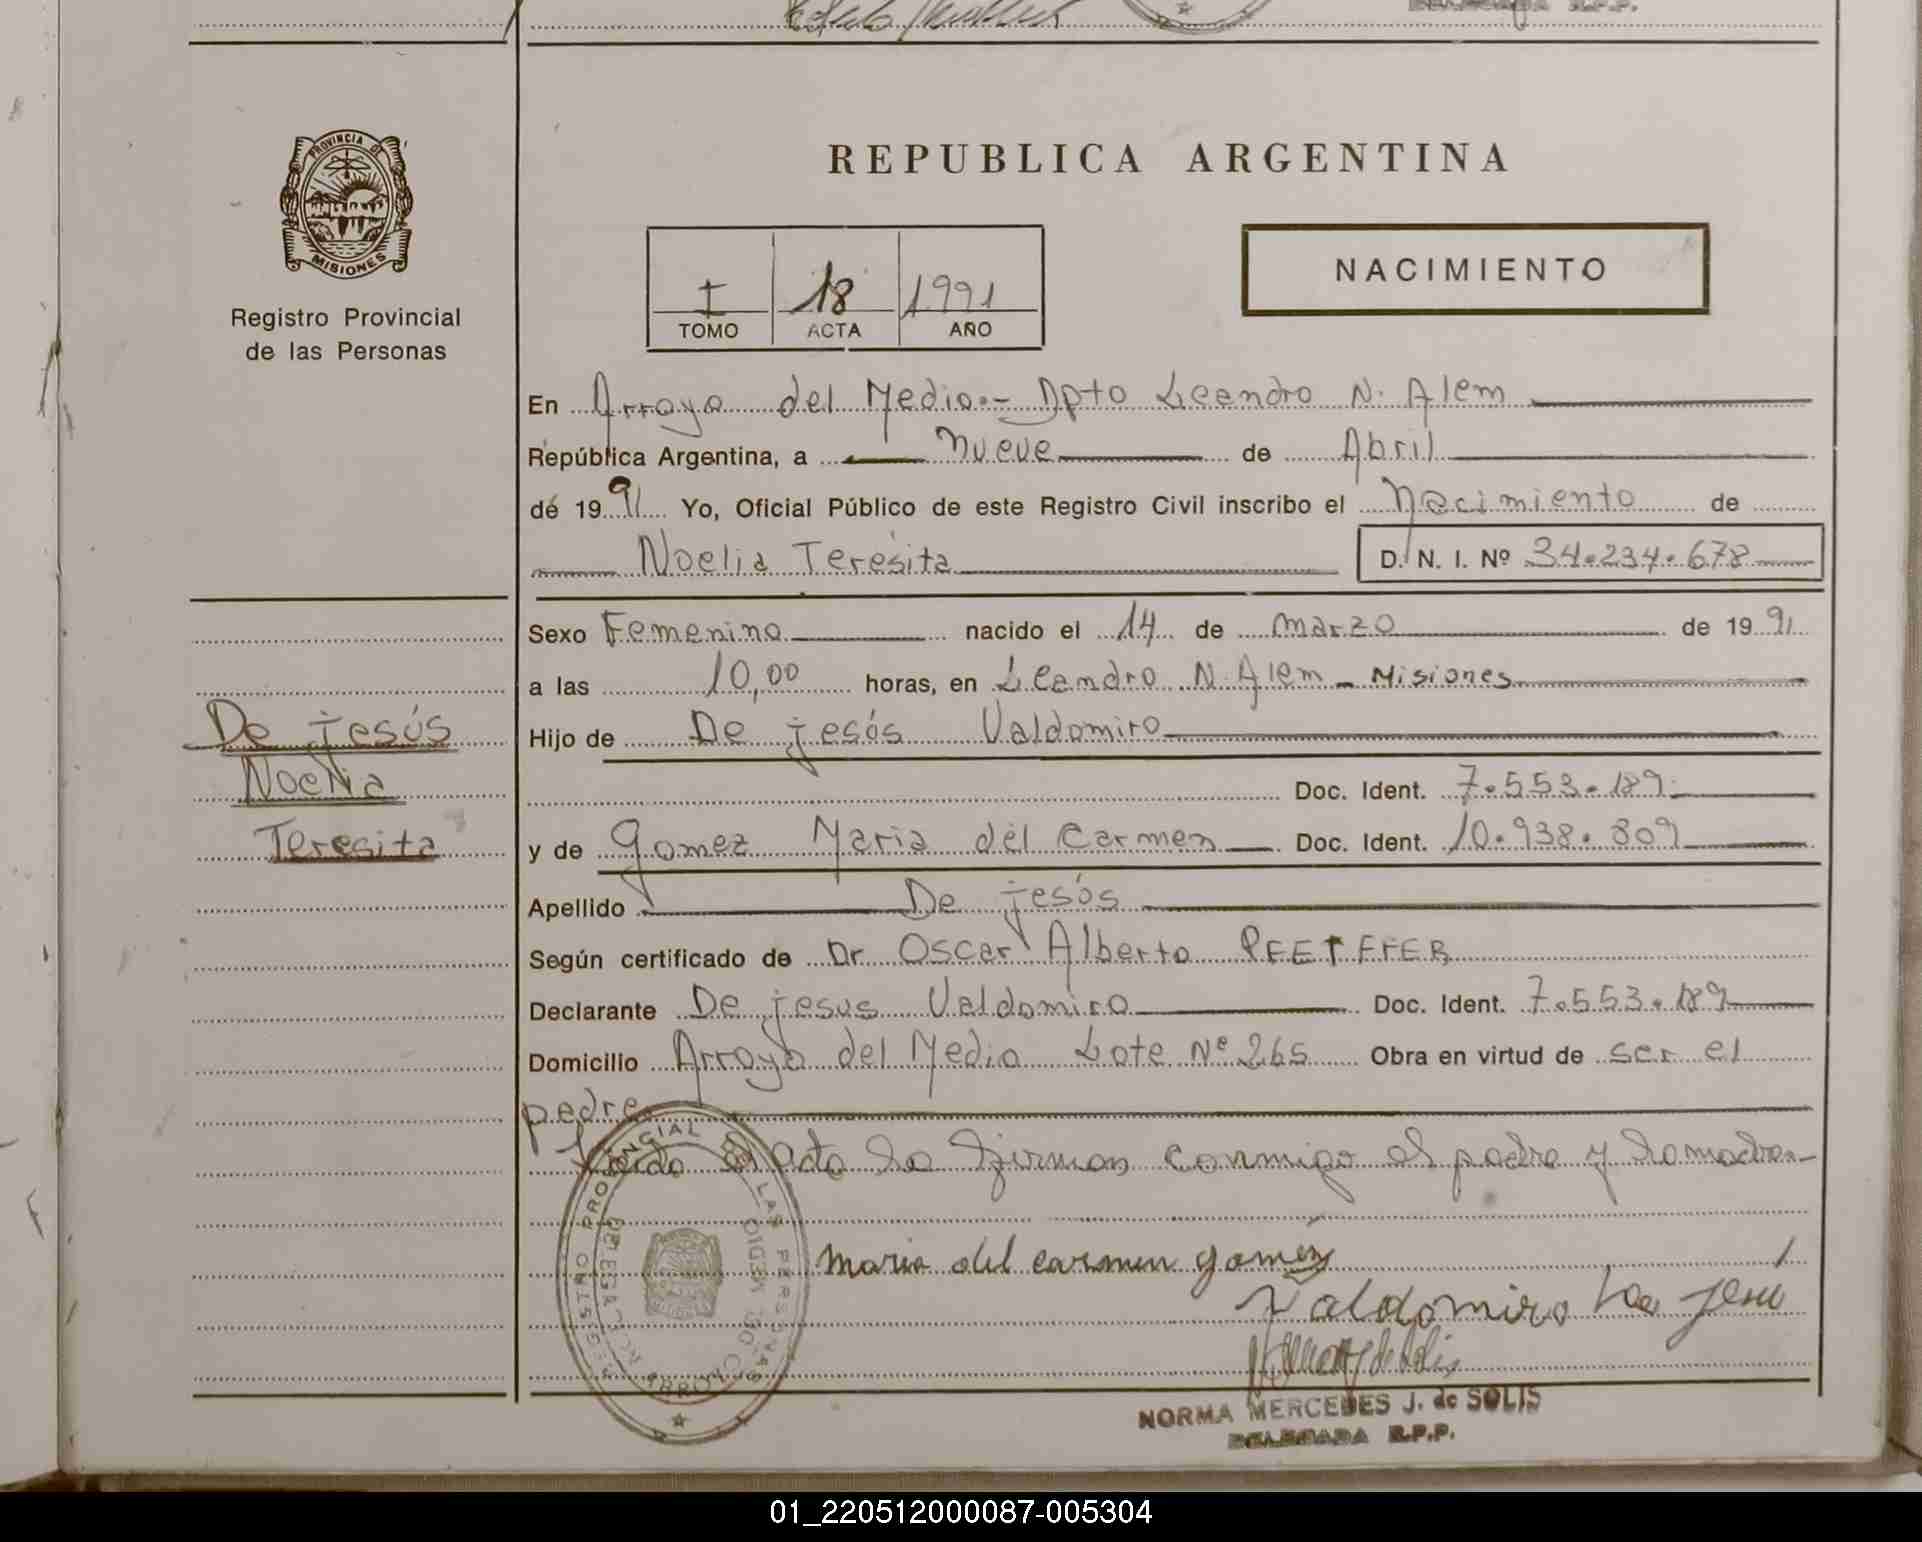 PROVINCIA DE
MISIONES
Registro Provincial
de las Personas
REPUBLICA ARGENTINA
I 18 1991
TOMO ACTA AÑO
NACIMIENTO
En Arroyo del Medio.- Dpto Leandro N. Alem
República Argentina, a nueve de Abril
de 19 91 Yo, Oficial Público de este Registro Civil inscribo el Nacimiento de
Noelia Teresita D. N. I. Nº 34.234.678
Sexo Femenino nacido el 14 de marzo de 19 91
a las 10,00 horas, en Leandro N. Alem - Misiones
De jesús
Noelia
Teresita
Hijo de De jesús Valdomiro
Doc. Ident. 7.553.189
y de Gomez Maria del Carmen Doc. Ident. 10.938.809
Apellido De jesús
Según certificado de Dr Oscar Alberto PFEIFFER
Declarante De jesus Valdomiro Doc. Ident. 7.553.189
Domicilio Arroyo del Medio Lote Nº 265 Obra en virtud de ser el
padre
Leida el acta la firman conmigo el padre y la madre.-
REGISTRO PROVINCIAL DE LAS PERSONAS
ARROYO DEL MEDIO
maria del carmen gomez
Valdomiro De Jesu
NORMA MERCEDES J. de SOLIS
DELEGADA R.P.P.
01_220512000087-005304